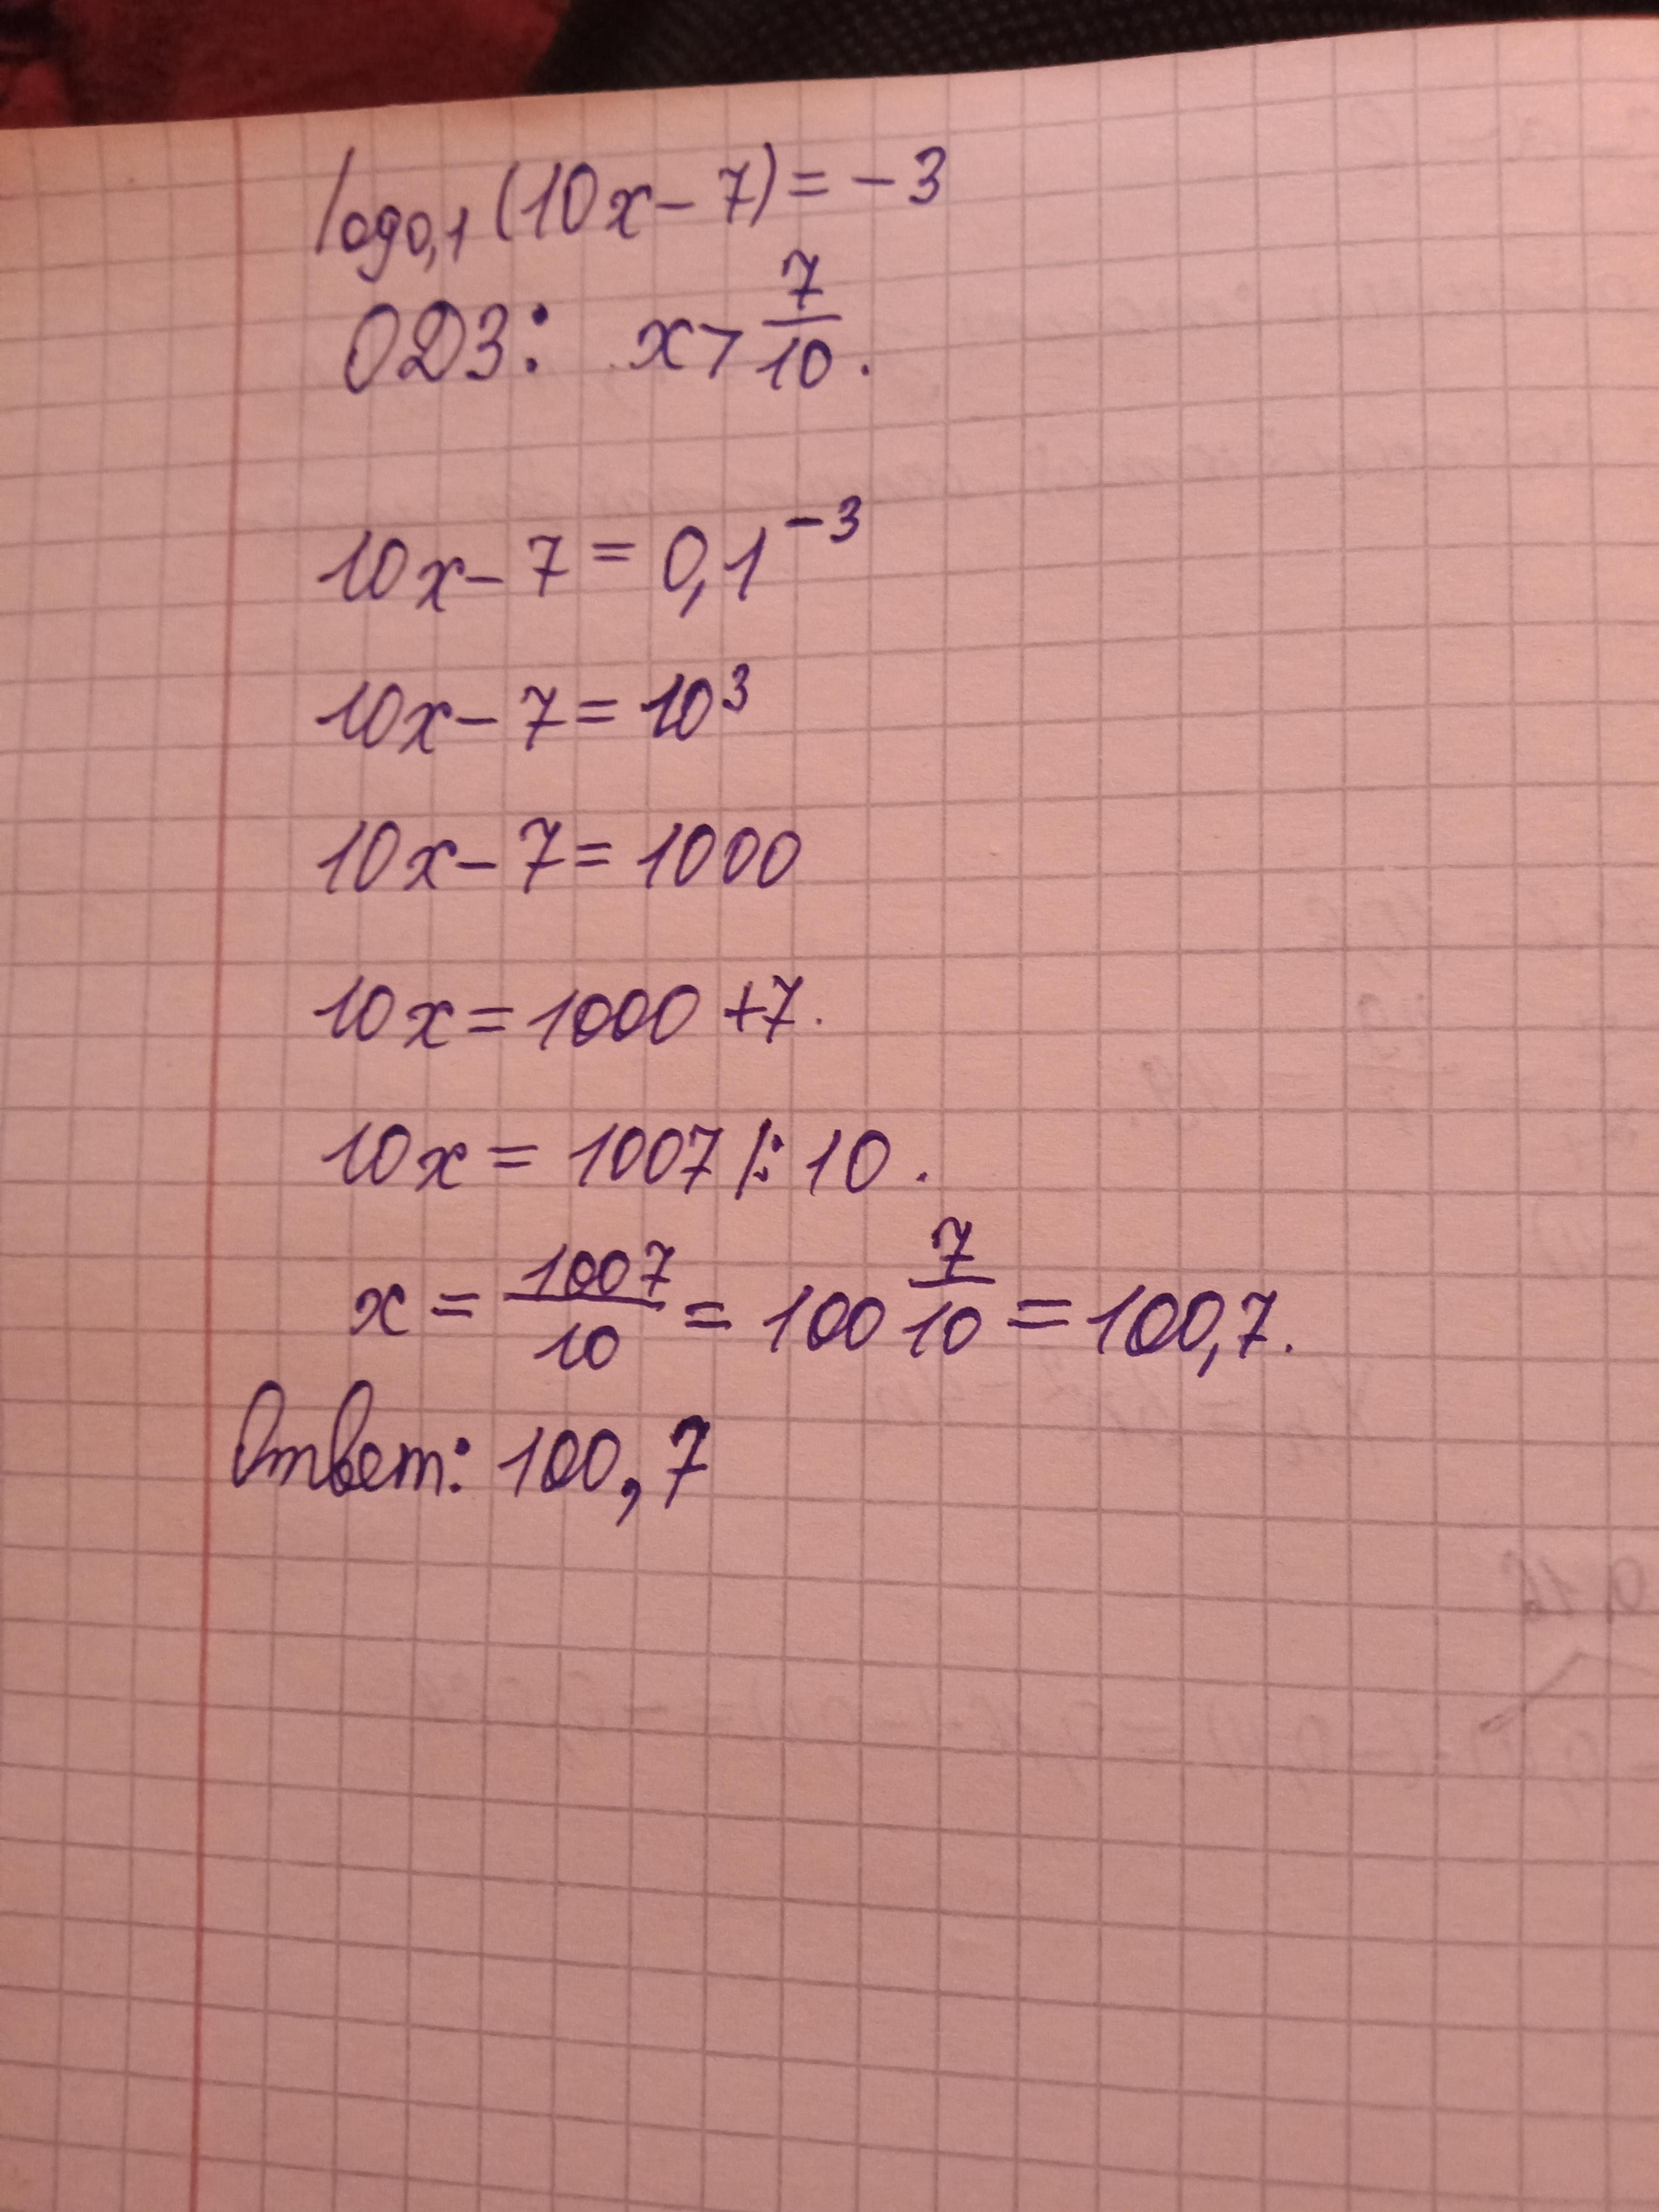 log₀,₁ (10x - 7) = -3
ОДЗ: x > 7/10.
10x - 7 = 0,1⁻³
10x - 7 = 10³
10x - 7 = 1000
10x = 1000 + 7.
10x = 1007 |: 10.
x = 1007/10 = 100 7/10 = 100,7.
Ответ: 100,7